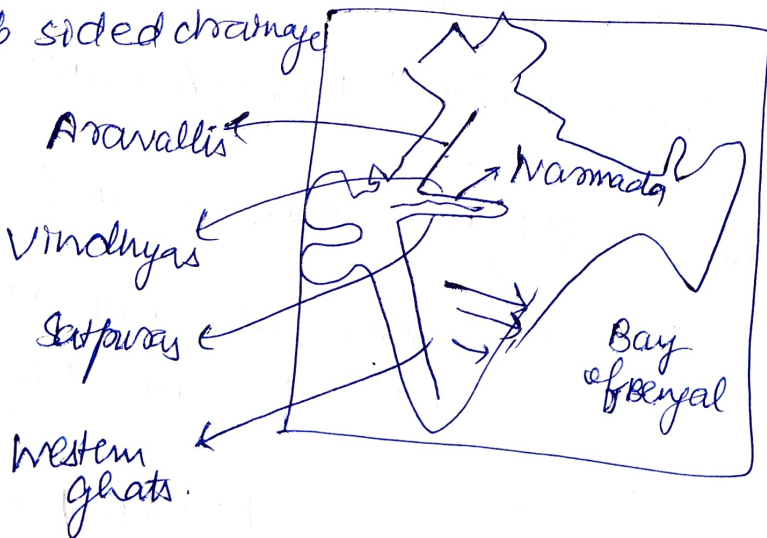 sided drainage
Aravallis
Narmada
Vindhyas
Satpuras
Bay
of Bengal
Western
ghats.